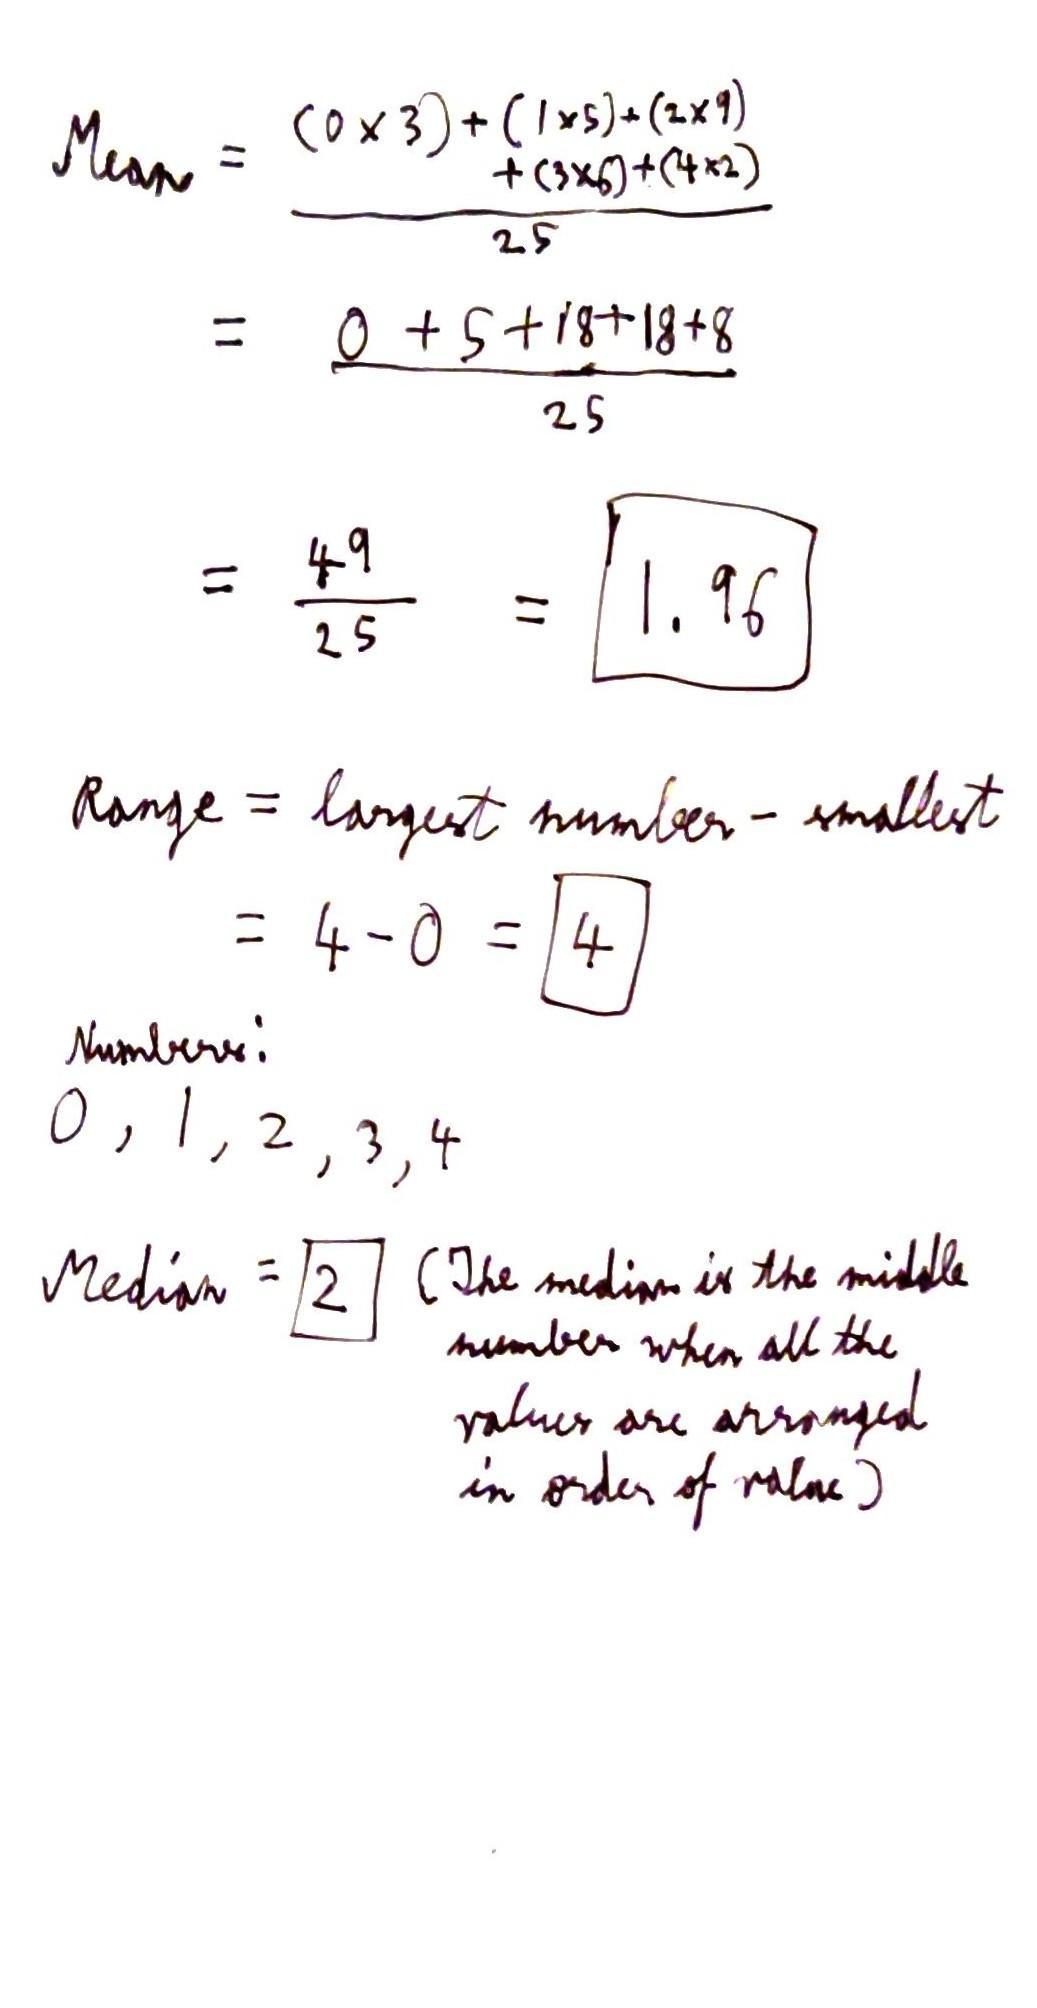 Mean = (0 x 3) + (1 x 5) + (2 x 9)
+ (3 x 6) + (4 x 2)
25
= 0 + 5 + 18 + 18 + 8
25
= 49
25
= 1.96
Range = largest number - smallest
= 4 - 0 = 4
Numbers:
0, 1, 2, 3, 4
Median = 2 (The median is the middle
number when all the
values are arranged
in order of value)